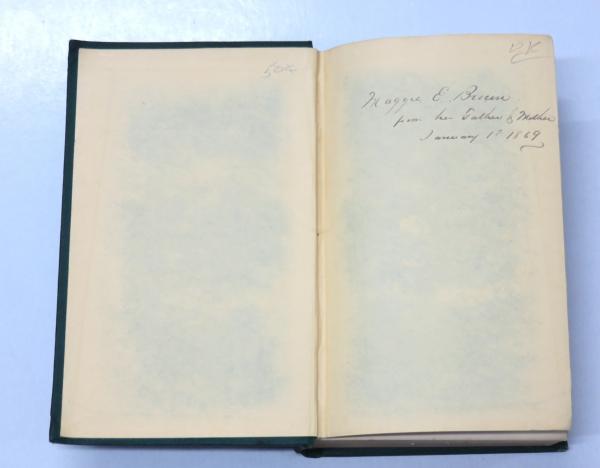 Maggie E.
from her Father & Mother
January 1st 1869